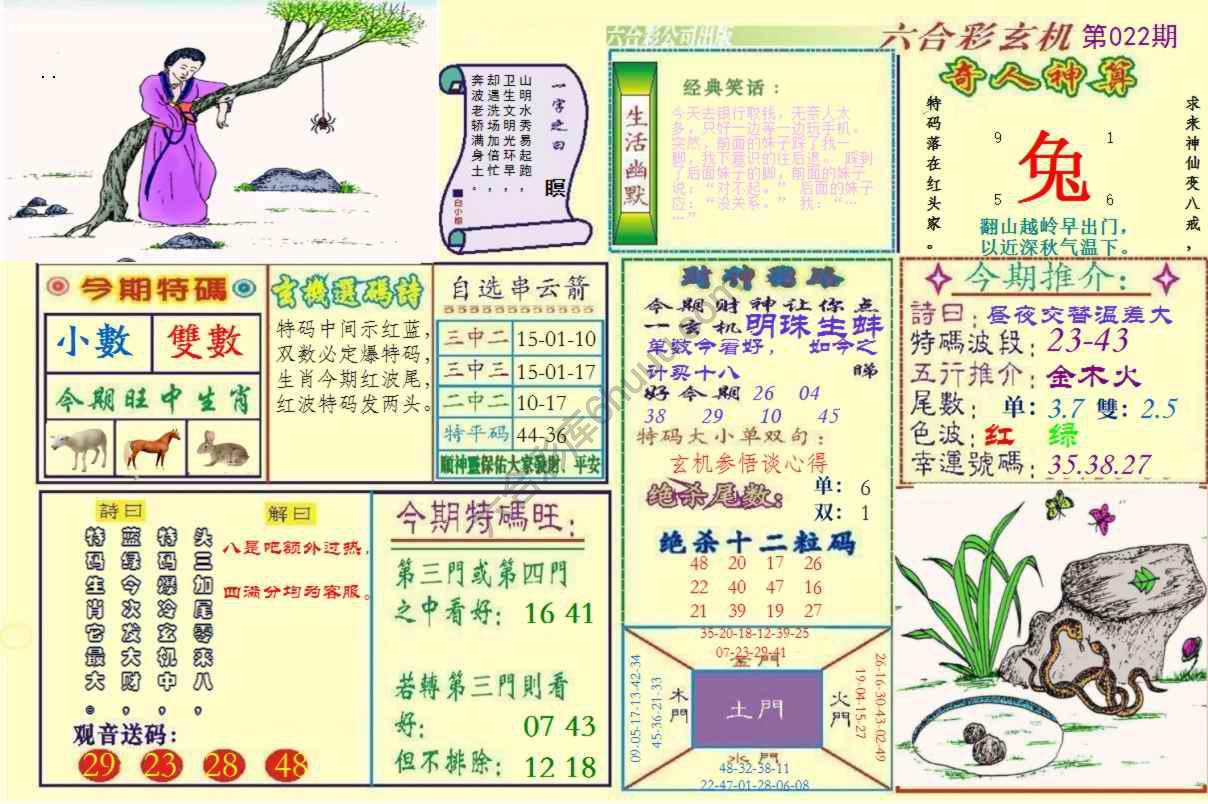 六合彩公司出版
六合彩玄机 第022期
一字之曰
瞑
山明水秀易起跑，
卫生文明光环早，
却遇洗场加倍忙，
奔波老轿满身土。
白小姐
生活幽默
经典笑话：
今天去银行取钱，无奈人太
多，只好一边等一边玩手机。
突然，前面的妹子踩了我一
脚，我下意识的往后退。 踩到
了后面妹子的脚，前面的妹子
说：“对不起。” 后面的妹子
应：“没关系。” 我：“…
…”
奇人神算
求来神仙变八戒，
特码落在红头家。
9 1
兔
5 6
翻山越岭早出门，
以近深秋气温下。
今期特碼
小數 雙數
今期旺中生肖
玄機選碼詩
特码中间示红蓝，
双数必定爆特码，
生肖今期红波尾，
红波特码发两头。
自选串云箭
三中二 15-01-10
三中三 15-01-17
二中二 10-17
特平码 44-36
願神靈保佑大家發財，平安
财神密路
今期财神让你点
一玄机 明珠生蚌
单数今看好， 如今之
计买十八 睇
好今期 26 04
38 29 10 45
特码大小单双句：
玄机参悟谈心得
绝杀尾数： 单： 6
双： 1
绝杀十二粒码
48 20 17 26
22 40 47 16
21 39 19 27
今期推介：
詩曰：昼夜交替温差大
特碼波段：23-43
五行推介：金木火
尾数： 单：3.7 雙：2.5
色波：红 绿
幸運號碼：35.38.27
詩曰
头三加尾零来八，
特码爆冷玄机中，
蓝绿今次发大财，
特码生肖它最大。
解曰
八是吧额外过热，
四满分均为客服。
观音送码：
29 23 28 48
今期特碼旺：
第三門或第四門
之中看好： 16 41
若轉第三門則看
好： 07 43
但不排除： 12 18
35-20-18-12-39-25
07-23-29-41
金門
09-05-17-13-42-34
45-36-21-33
木門
土門
火門
19-04-15-27
26-16-30-43-02-49
水門
48-32-38-11
22-47-01-28-06-08